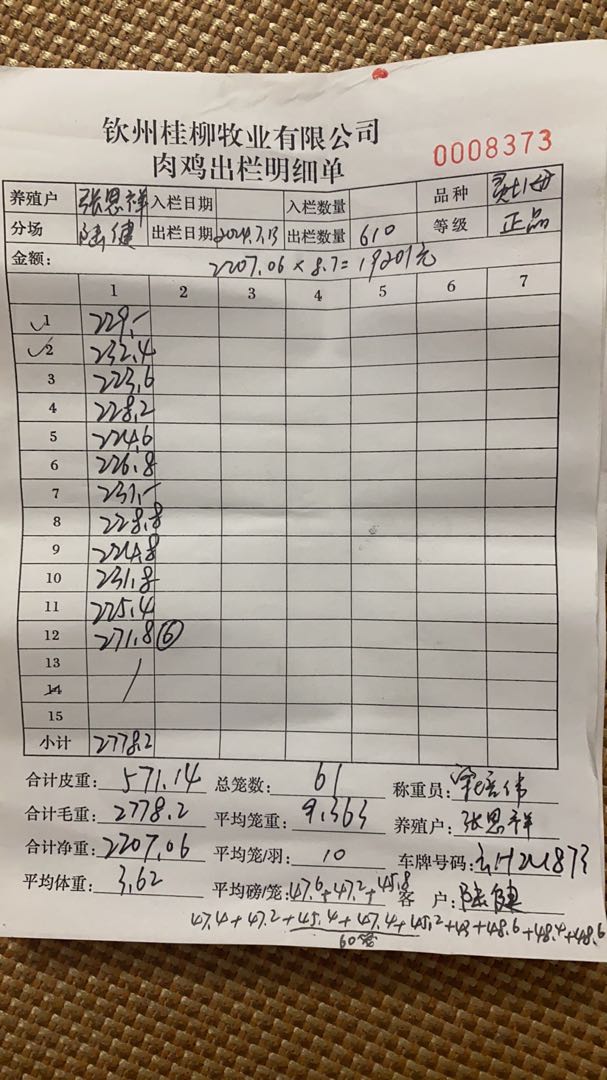 钦州桂柳牧业有限公司
肉鸡出栏明细单
0008373
养殖户 张思祥 入栏日期 入栏数量 品种
分场 陆健 出栏日期 2024.7.13 出栏数量 610 等级 正品
金额: 2207.06 × 8.7 = 19201元
1 2 3 4 5 6 7
1 229.-
2 232.4
3 223.6
4 228.2
5 224.6
6 226.8
7 231.-
8 228.8
9 224.8
10 231.8
11 225.4
12 271.8 ⑥
13
14
15
小计 2778.2
合计皮重: 571.14 总笼数: 61 称重员:
合计毛重: 2778.2 平均笼重: 9.363 养殖户: 张思祥
合计净重: 2207.06 平均笼/羽: 10 车牌号码:
平均体重: 3.62 平均磅/笼: 47.6+47.2+45.8 客户: 陆健
47.4+47.2+45.4+47.4+45.2+43+48.6+48.4+48.6